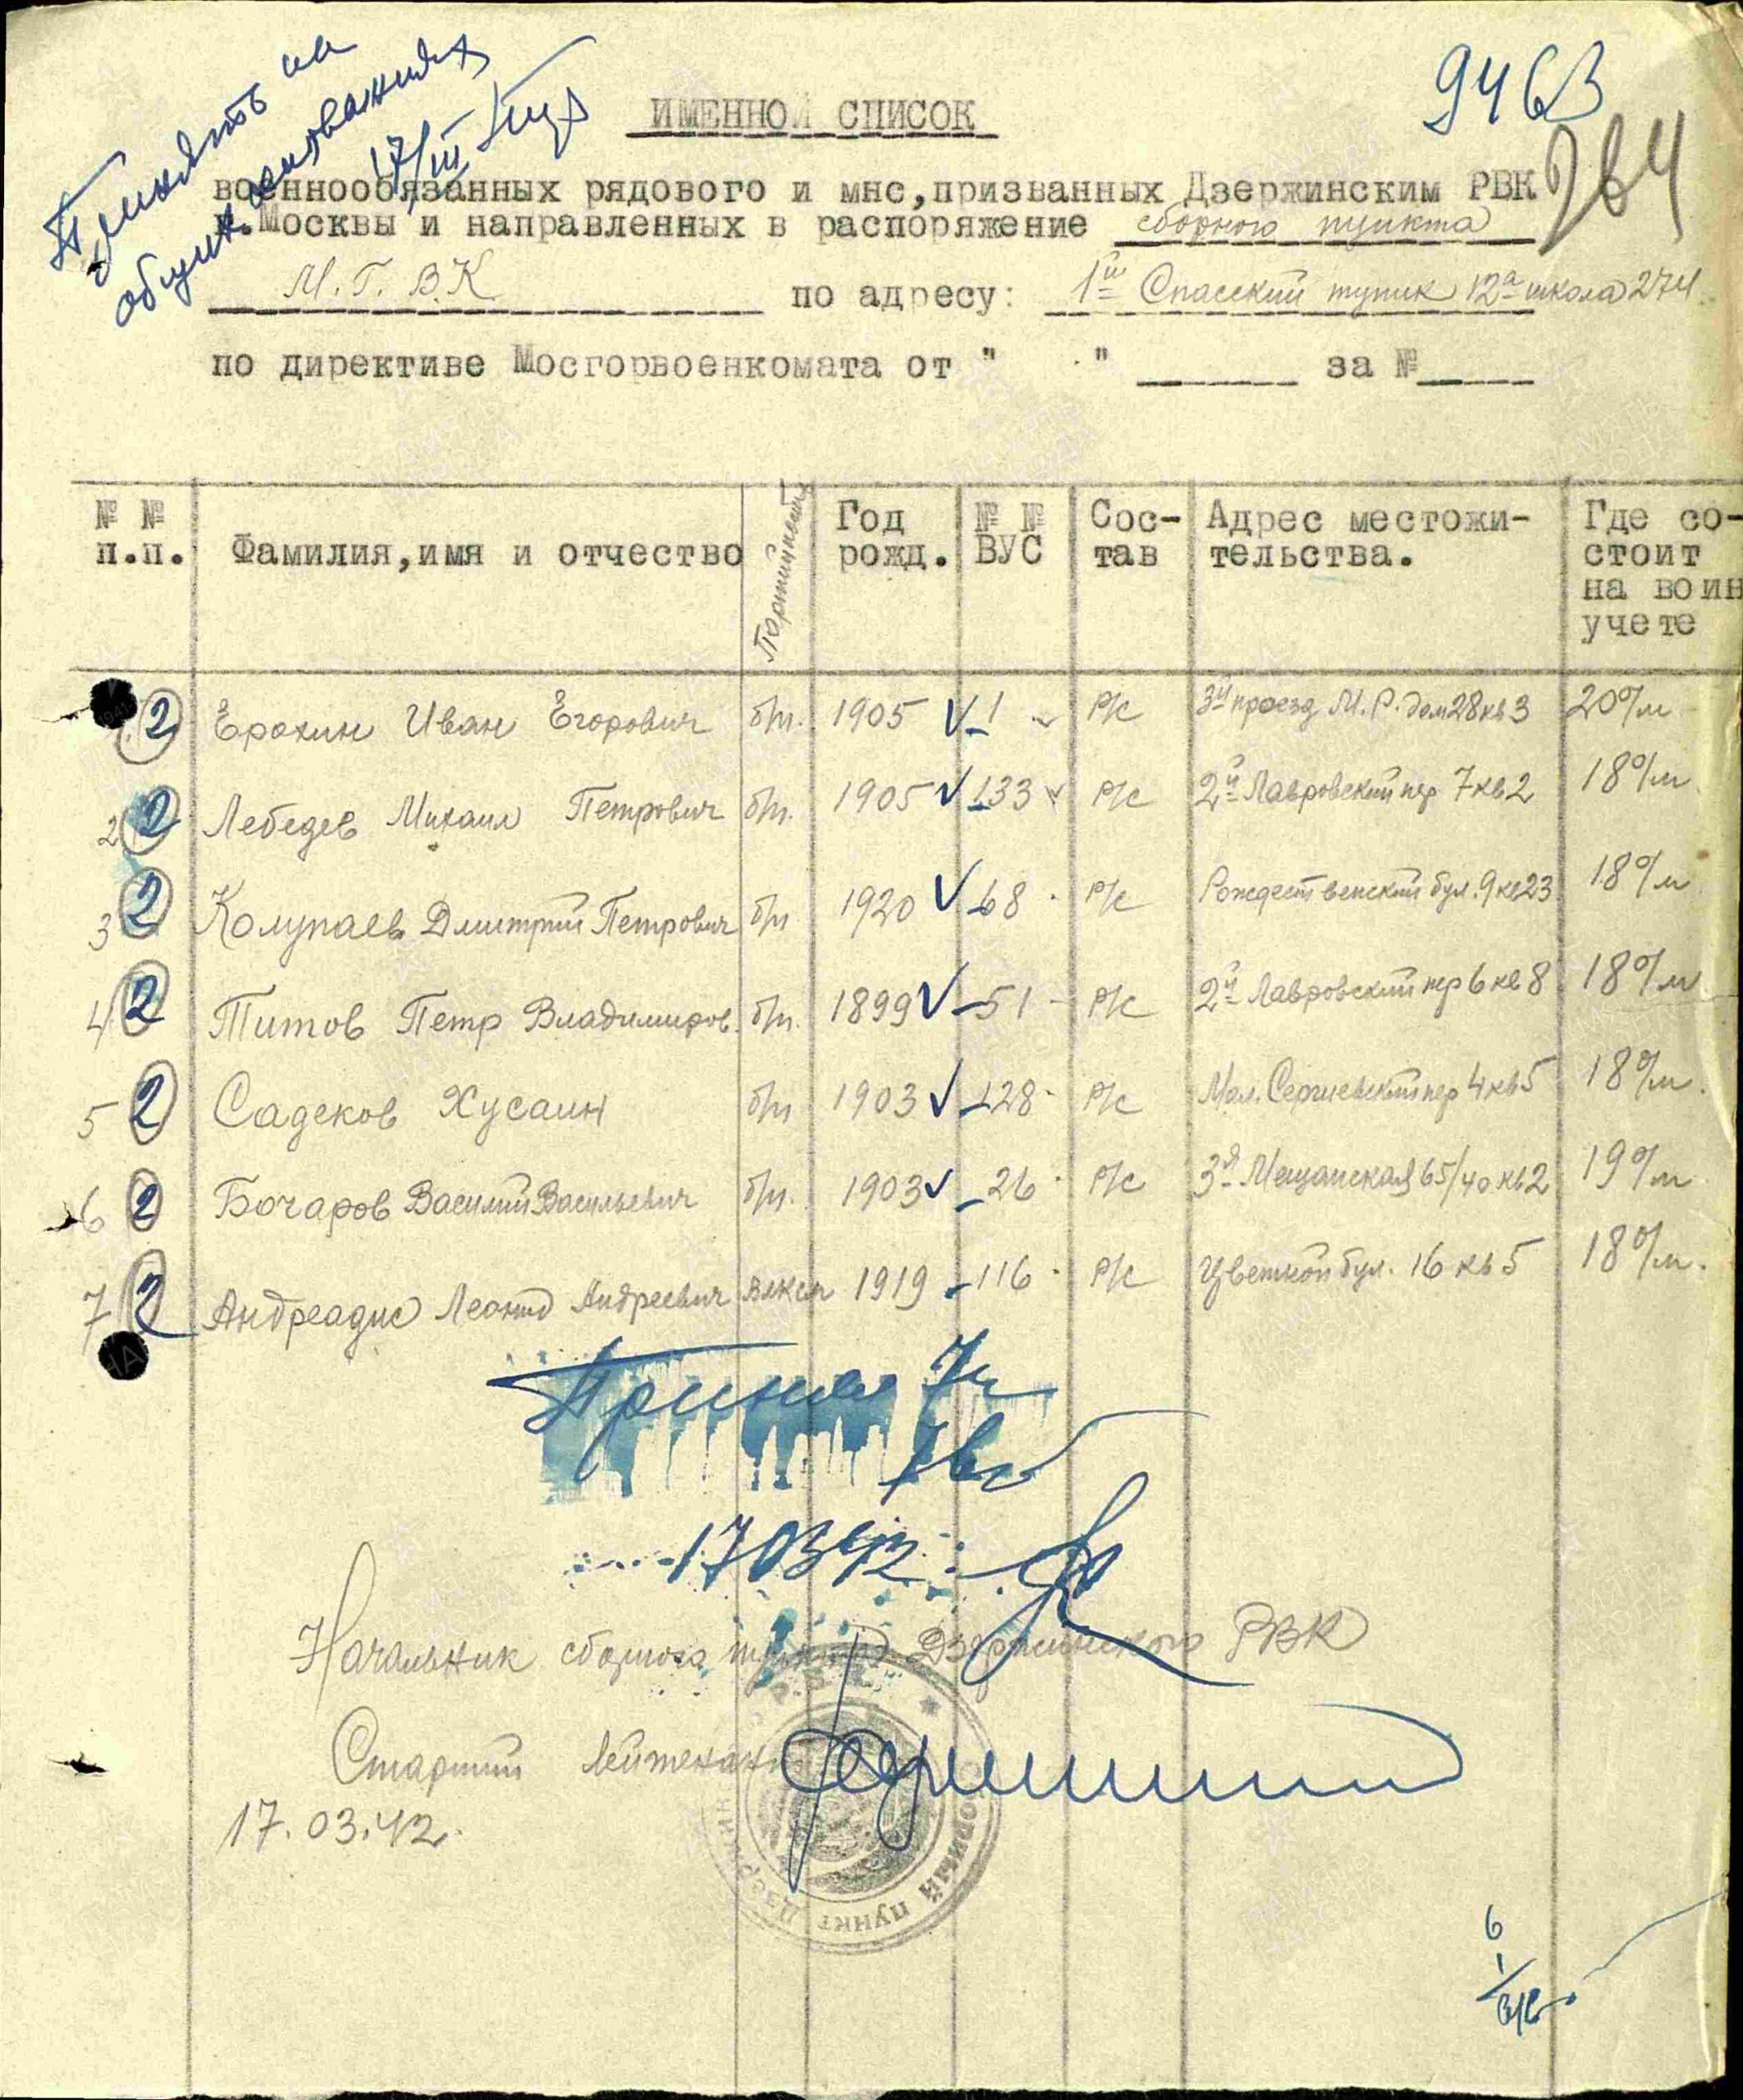 Принять на
17/III
9463
264
ИМЕННОЙ СПИСОК
военнообязанных рядового и мнс,призванных Дзержинским РВК
г.Москвы и направленных в распоряжение сборного пункта
М.Г.В.К. по адресу: 1й Спасский тупик 12а школа 274
по директиве Мосгорвоенкомата от " " за №
№ № п.п. Фамилия,имя и отчество Партийность Год рожд. № № ВУС Сос-тав Адрес местожи-тельства. Где со-стоит на воин учете
2 Ерохин Иван Егорович б/п. 1905 V 1 Р/с 3й проезд М.Р. дом 28 кв 3 20 о/м
2 2 Лебедев Михаил Петрович б/п. 1905 V 133 Р/с 2й Лавровский пер 7 кв 2 18 о/м
3 2 Колупаев Дмитрий Петрович б/п 1920 V 68 Р/с Рождественский бул. 9 кв 23 18 о/м
4 2 Титов Петр Владимиров. б/п. 1899 V 51 Р/с 2й Лавровский пер 6 кв 8 18 о/м
5 2 Садеков Хусаин б/п 1903 V 128 Р/с Мал. Сергиевский пер 4 кв 5 18 о/м.
6 2 Бочаров Василий Васильевич б/п. 1903 V 26 Р/с 3я Мещанская 65/40 кв 2 19 о/м
7 2 Андреадис Леонид Андреевич влксм 1919 116 Р/с Цветной бул. 16 кв 5 18 о/м.
Принял 7ч
170342
Начальник сборного пункта Дзержинского РВК
Старший Лейтенант
17.03.42.
СБОРНЫЙ ПУНКТ
6